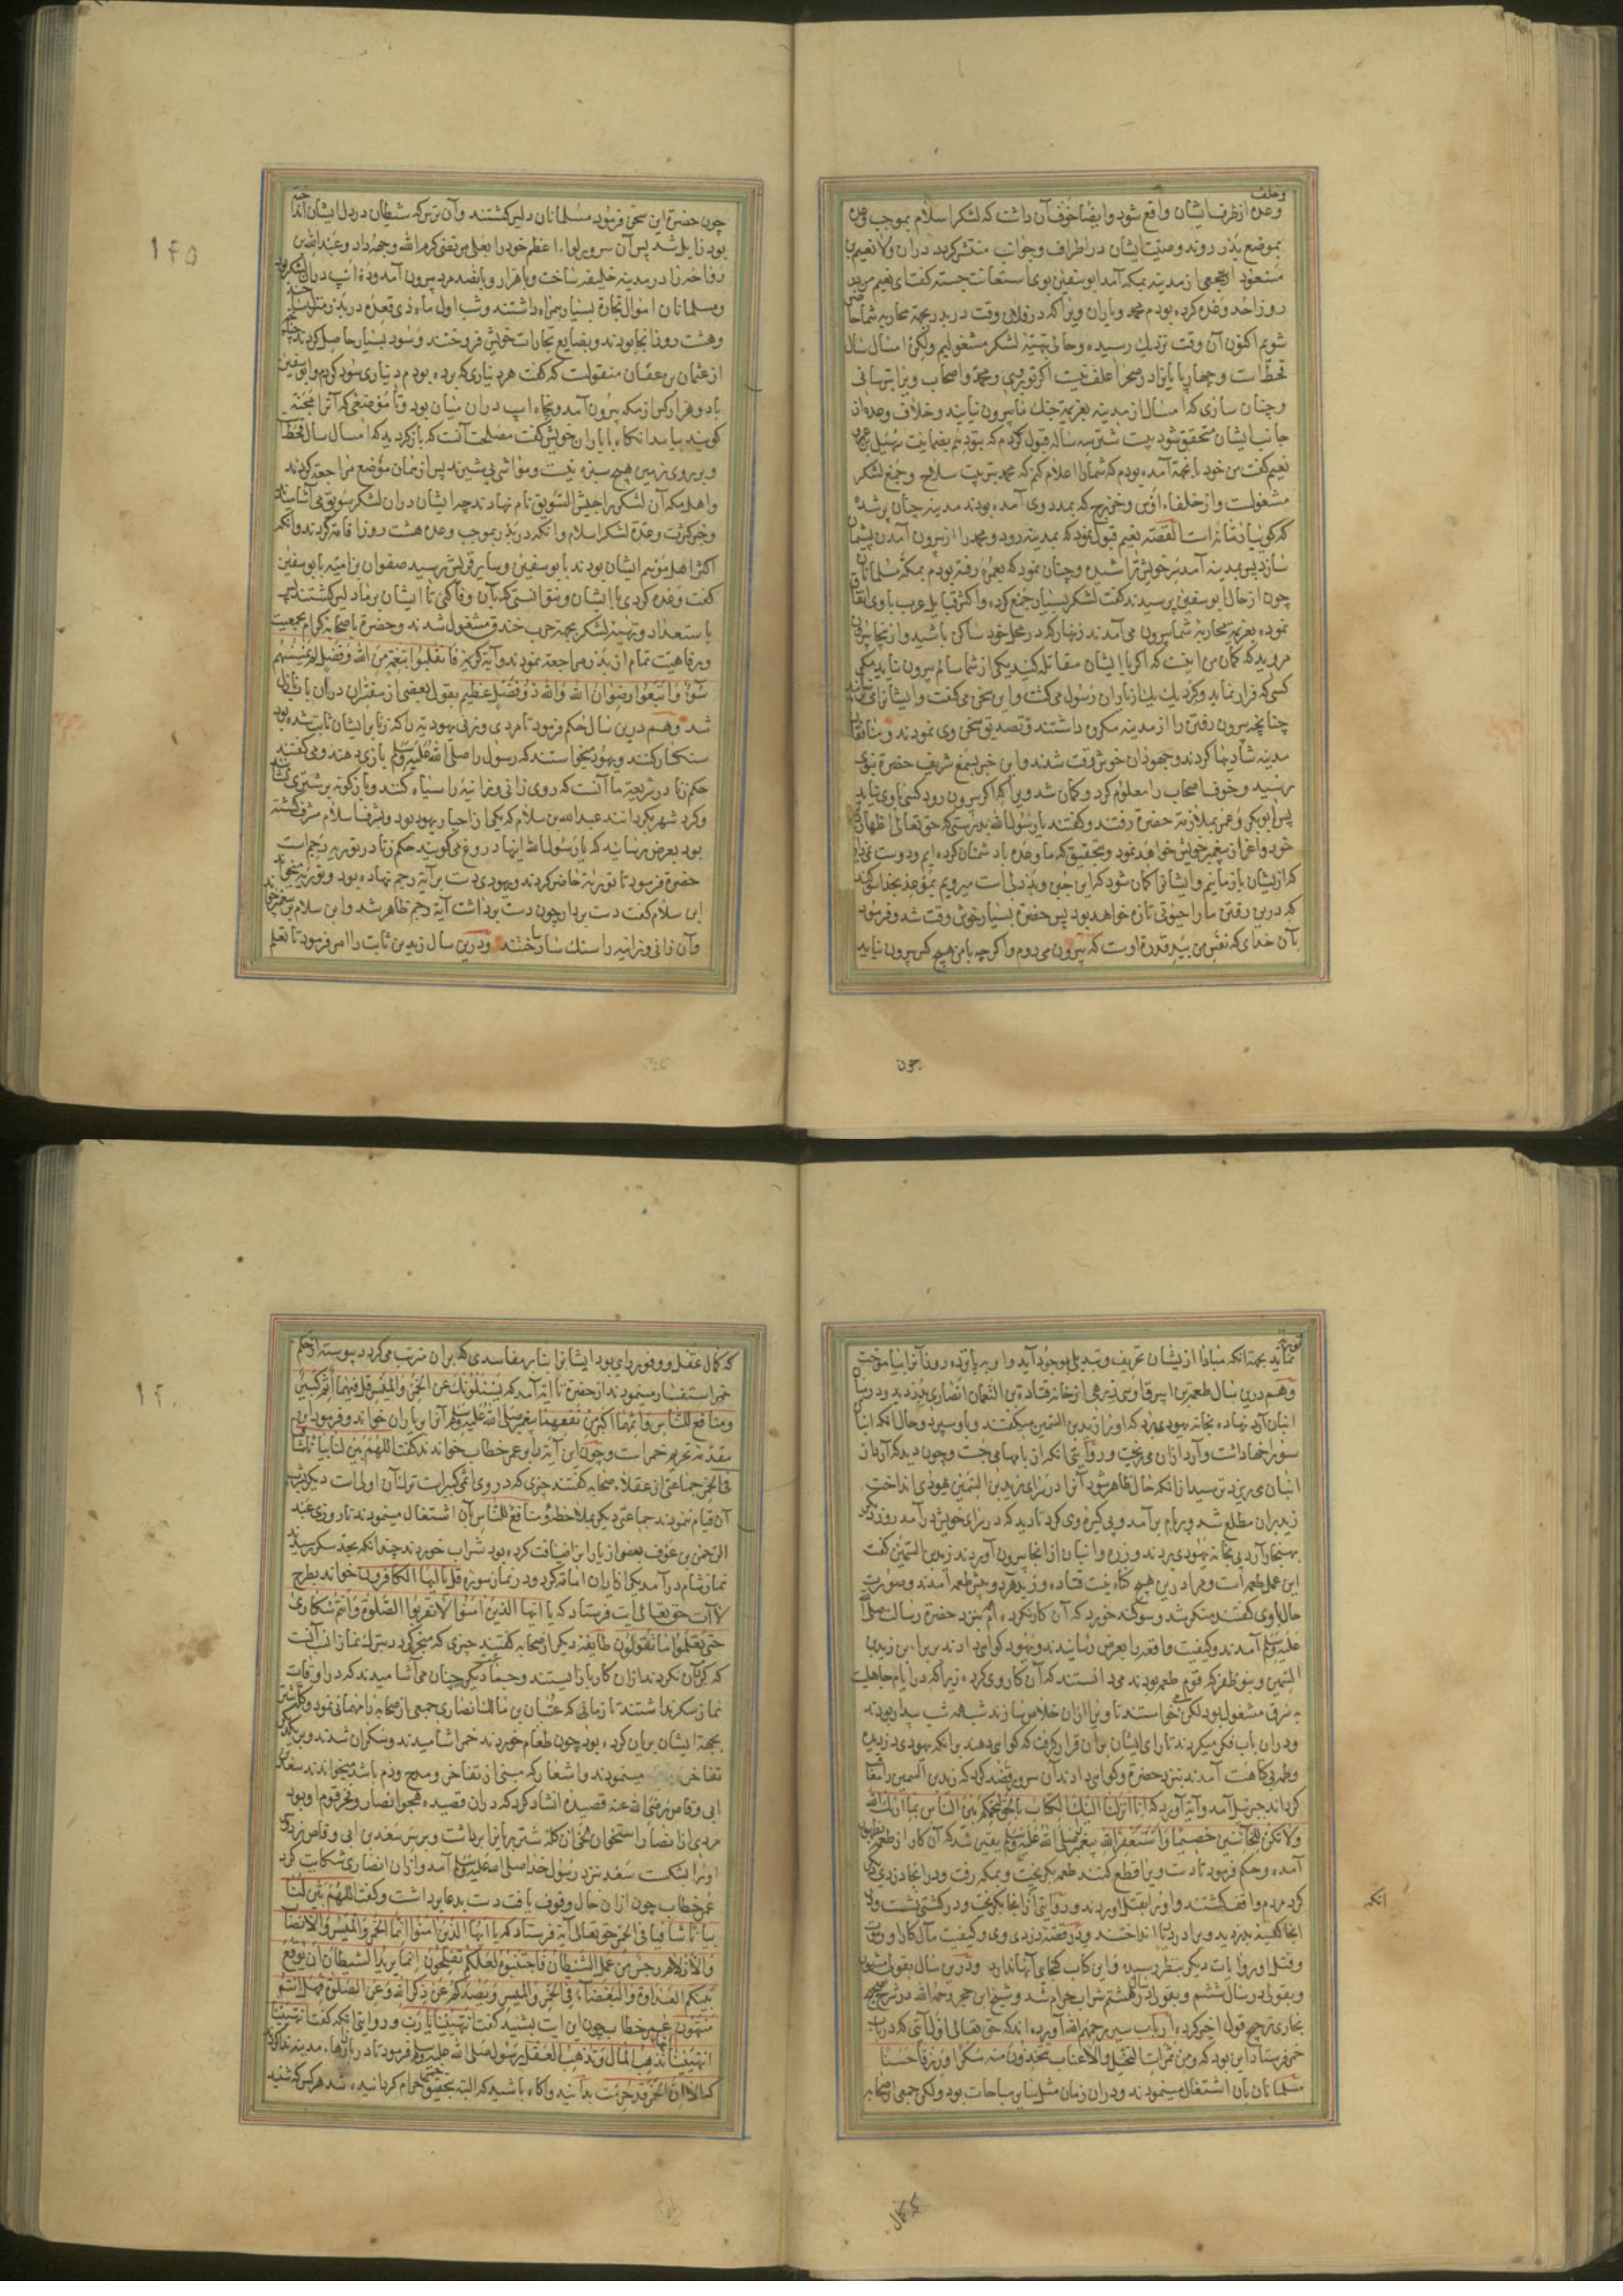 وخلف
وعده از طرف ایشان واقع شود و ایضا خوف آن داشت که لشکر اسلام بموجب وعده
بموضع بدر روند وصیت ایشان در اطراف وجوانب منتشر کردد دران ولا نعیم بن
مسعود اشجعی از مدینه بمکه آمد ابوسفین بوی استعانت جسته کفت ای نعیم من در
روز احد وعده کرده بودم محمد ویاران ویرا که در فلان وقت در بدر بجهة محاربه شما حاضر
شویم اکنون آن وقت نزدیک رسیده وحالی بتهیئه لشکر مشغولیم ولکن امسال سال
قحط است وچهارپایانرا در صحرا علف نیست اکر تو بروی ومحمد واصحاب ویرا بترسانی
وچنان سازی که امسال از مدینه بعزیمة جنک ما بیرون نیایند وخلاف وعده از
جانب ایشان متحقق شود بیست شتر سه ساله قبول کردم که بتو دهم بضمانیت سهیل بن عمرو
نعیم کفت من خود باینجهة آمده بودم که شما را اعلام کنم که محمد بترتیب سلاح وجمع لشکر
مشغولست واز حلفاء اوس وخزرج که بمدد وی آمده بودند مدینه چنان پر شده
که کویا رمانه است القصه نعیم قبول نمود که بمدینه رود ومحمد را از بیرون آمدن پشیمان
سازد پس بمدینه آمد سر خویش تراشیده وچنان نمود که بعمره رفته بودم بمکه مسلمانان
چون از حال ابوسفین پرسیدند کفت لشکر بسیار جمع کرده واکثر قبایل عرب با وی اتفاق
نموده بعزیمة محاربه شما بیرون می آمدند زنهار که در محل خود ساکن باشید واز نجا بیرون
مروید که کمان من اینست که اکر با ایشان مقاتله کنید یکی از شما سالم بیرون نیاید مکر
کسی که فرار نماید وکرد یک یک از یاران رسول می کشت واین سخن می کفت وایشانرا می ترسانید
چنانچه بیرون رفتن را از مدینه مکروه داشتند وتصدیق سخن وی نمودند ومنافقان
مدینه شادیها کردند وجهودان خوش وقت شدند واین خبر بسمع شریف حضرة نبوی
رسید وخوف اصحاب را معلوم کرد وکمان شد ویرا که اکر بیرون رود کسی با وی نیاید
پس ابوبکر وعمر بملازمة حضرة رفتند وکفتند یا رسول الله بدرستی که حق تعالی اظهار دین
خود واعزاز پیغمبر خویش خواهد نمود وبتحقیق که ما وعده با دشمنان کرده ایم ودوست نمیداریم
که از یشان باز مانیم وایشانرا کمان شود که این جبن وبد دلی است میرویم بموعد بخدا سوکند
که درین رفتن ما را خیرتی تازه خواهد بود پس حضرة بسیار خوش وقت شد وفرمود
بآن خدای که نفس من بید قدرة اوست که بیرون می روم واکر چه با من هیچ کس بیرون نیاید
چون
۱۴۵
چون حضرة این سخن فرمود مسلمانان دلیر کشتند وآن ترس که شیطان در دل ایشان انداخته
بود زایل شد پس آن سرور لواء اعظم خود را بعلی مرتضی کرم الله وجهه داد وعبد الله بن
رواحه را در مدینه خلیفه ساخت وبا هزار وپانصد مرد بیرون آمد وده اسپ دران لشکر بود
ومسلمانان اموال تجارة بسیار همراه داشتند وشب اول ماه ذی قعده در بدر منزل ساختند
وهشت روز انجا بودند وبضایع تجارات خویش فروختند وسود بسیار حاصل کردند چنانچه
از عثمان بن عفان منقولست که کفت هر دیناری که برده بودم دیناری سود کردم وابوسفین
با دو هزار کس از مکه بیرون آمد وپنجاه اسپ دران میان بود وتا موضعی که آنرا مجنه
کویند بیامد انکاه با یاران خویش کفت مصلحت آنست که باز کردید که امسال سال قحط است
وبر روی زمین هیچ سبزه نیست ومواشی بی شیرند پس از همان موضع مراجعه کردند
واهل مکه آن لشکر را جیش السویق نام نهادند چه ایشان دران لشکر سویق می آشامیدند
وخبر کثرت وعدة لشکر اسلام وانکه در بدر بموجب وعده هشت روز اقامه کردند وانکه
اکثر اهل موسم ایشان بودند بابوسفین وسایر قریش رسید صفوان بن امیه با ابوسفین
کفت وعده کردی با ایشان ونتوانستی که بآن وفا کنی تا ایشان بر ما دلیر کشتند پس
باستعداد وتهیئه لشکر بجهة حرب خندق مشغول شدند وحضرة با صحابه کرام بجمعیت
ورفاهیت تمام از بدر مراجعه نمودند وآیه کریمه فانقلبوا بنعمة من الله وفضل لم یمسسهم
سوء واتبعوا رضوان الله والله ذو فضل عظیم بقول بعضی از مفسران دران باب نازل
شد وهم درین سال حکم فرمود تا مردی وزنی یهودیه را که زنا بر ایشان ثابت شده بود
سنکسار کنند ویهود میخواستند که رسول را صلی الله علیه وسلم بازی دهند ومی کفتند
حکم زنا در شریعة ما آنست که روی زانی وزانیه را سیاه کنند وباز کونه بر شتری نشانند
وکرد شهر بکردانند عبد الله بن سلام که یکی از احبار یهود بود وبشرف اسلام مشرف کشته
بود بعرض رسانید که یا رسول الله اینها دروغ می کویند حکم زنا در توریه رجم است
حضرة فرمود تا توریة حاضر کردند ویهودی دست بر آیة رجم نهاده بود وتوریه میخواند
ابن سلام کفت دست بردار چون دست برداشت آیة رجم ظاهر شد وابن سلام بر پیغمبر خواند
وآن زانی وزانیه را سنک سار ساختند ودرین سال زید بن ثابت را امر فرمود تا تعلم
توریة
نماید بجهة انکه مبادا از یشان تحریف وتبدیل بوجود آید واو بپانزده روز آنرا بیاموخت
وهم درین سال طعمة بن ابیرق اوسی زرهی از خانه قتادة بن النعمان انصاری بدزدید ودر میان
انبان آرد نهاده بخانه یهودی برد که او را زید بن السمین میکفتند وباو سپرد وحال انکه انبان
سوراخها داشت وآرد ازان می ریخت ودر روایتی انکه از بامها می جست وچون دید که آرد از
انبان می ریزد ترسید از انکه حال ظاهر شود آنرا در سرای زید بن السمین یهودی انداخت
زید بران مطلع شد وبر بام بر آمد وپی کیری وی کرد تا دید که در سرای خویش در آمد روز دیکر
بهنجار آرد پی بخانه یهودی بردند وزره وانبان از انجا بیرون آوردند زید بن السمین کفت
این عمل طعمه است ومرا درین هیچ کناه نیست قتاده وزید هردو پیش طعمه آمدند وصورت
حال باوی کفتند منکر شد وسوکند خورد که آن کار نکرده ام بنزد حضرة رسالت صلی الله
علیه وسلم آمدند وکیفیت واقعه را بعرض رسانیدند ویهود کواهی دادند بر براءت زید بن
السمین وبنو ظفر که قوم طعمه بودند می دانستند که آن کار وی کرده زیرا که در ایام جاهلیت
به سرقه مشغول بود لکن می خواستند تا ویرا ازان خلاص سازند شب همه شب بیدار بودند
ودران باب فکر میکردند تا رای ایشان بران قرار کرفت که کواهی دهند بر انکه یهودی دزدیده
وطعمه بی کناهست آمدند بنزد حضرة وکواهی دادند آن سرور قصد کرد که زید بن السمین را معاقب
کرداند جبرئیل آمد وآیه آورد که انا انزلنا الیک الکتاب بالحق لتحکم بین الناس بما اراک الله
ولا تکن للخائنین خصیما واستغفر الله پیغمبر صلی الله علیه وسلم یقین شد که آن کار از طعمه بظهور
آمده وحکم فرمود تا دست ویرا قطع کنند طعمه بکریخت وبمکه رفت ودر انجا دزدی دیکر
کرد مردم واقف کشتند واو را بقتل آوردند ودر روایتی از انجا بکریخت ودر کشتی نشست ودر
انجا کیسه بدزدید واو را در دریا انداختند ودر قصه دزدی وی وکیفیت مآل کار او در موت
وقتل او روایات دیکر بنظر رسیده واین کتاب کنجای آنها ندارد ودرین سال بقول مشهور
وبقولی در سال ششم وبقولی در سال هشتم شراب حرام شد وشیخ ابن حجر رحمه الله در شرح صحیح
بخاری ترجیح قول اخیر کرده ارباب سیر رحمهم الله آورده اند که حق تعالی اول آیتی که در باب
خمر فرستاد این بود که ومن ثمرات النخیل والاعناب تتخذون منه سکرا ورزقا حسنا
مسلمانان بآن اشتغال مینمودند ودران زمان مثل سایر مباحات بود ولکن جمعی از صحابه
انکه
که کمال
که کمال عقل ووفور رای بود ایشانرا بنا بر مفاسدی که بران مترتب می کردد پیوسته از حکم
خمر استفسار مینمودند از حضرة تا آیه آمد که یسئلونک عن الخمر والمیسر قل فیهما اثم کبیر
ومنافع للناس واثمهما اکبر من نفعهما پیغمبر صلی الله علیه وسلم آنرا بر یاران خواند وفرمود این
مقدمه تحریم خمر است وچون این آیة را بر عمر خطاب خواندند کفت اللهم بین لنا بیانا شافیا
فی الخمر جماعتی از عقلاء صحابه کفتند چیزی که در وی اثمی کبیرست ترک آن اولی است دیکر بشرب
آن قیام ننمودند جماعتی دیکر بملاحظه ومنافع للناس بآن اشتغال مینمودند تا روزی عبد
الرحمن بن عوف بعضی از یارانرا ضیافت کرده بود شراب خوردند چندانکه بحد سکر رسیدند
نماز شام در آمد یکی از یاران امامة کرد ودر نماز سوره قل یا ایها الکافرون خواند بطرح
لاآت حق تعالی آیت فرستاد که یا ایها الذین آمنوا لا تقربوا الصلوة وانتم سکاری
حتی تعلموا ما تقولون طایفه دیکر از صحابه کفتند چیزی که منجر کردد بترک نماز انسب آنست
که کرد آن نکردند ازان کار باز ایستند وجماعت دیکر چنان می آشامیدند که در اوقات
نماز سکر نداشتند تا زمانی که عتبان بن مالک انصاری جمعی از صحابه را مهمانی نمود وکله شتر
بجهة ایشان بریان کرده بود چون طعام خوردند خمر آشامیدند وسکران شدند وبر یکدیکر
تفاخر مینمودند واشعار که مبنی از تفاخر ومدح وذم باشد میخواندند سعد بن
ابی وقاص رضی الله عنه قصیده انشاد کرد که دران قصیده هجو انصار وفخر قوم او بود
مردی از انصار استخوان زنخدان کله شتر بریانرا برداشت وبر سر سعد بن ابی وقاص زد وسر
او را بشکست سعد بنزد رسول خدا صلی الله علیه وسلم آمد وازان انصاری شکایت کرد
عمر خطاب چون ازان حال وقوف یافت دست بدعا برداشت وکفت اللهم بین لنا
بیانا شافیا فی الخمر حق تعالی آیه فرستاد که یا ایها الذین آمنوا انما الخمر والمیسر والانصاب
والازلام رجس من عمل الشیطان فاجتنبوه لعلکم تفلحون انما یرید الشیطان ان یوقع
بینکم العداوة والبغضاء فی الخمر والمیسر ویصدکم عن ذکر الله وعن الصلوة فهل انتم
منتهون عمر خطاب چون این آیت بشنید کفت انتهینا یا رب ودر روایتی انکه کفت انتهینا
انتهینا انها تذهب المال وتذهب العقل رسول صلی الله علیه وسلم فرمود تا در بازارها مدینه ندا کردند
که الا ان الخمر قد حرمت بدانید وآکاه باشید که البته بتحقیق خمر حرام کردانیده شد هر کس که شنید
۱۴۰